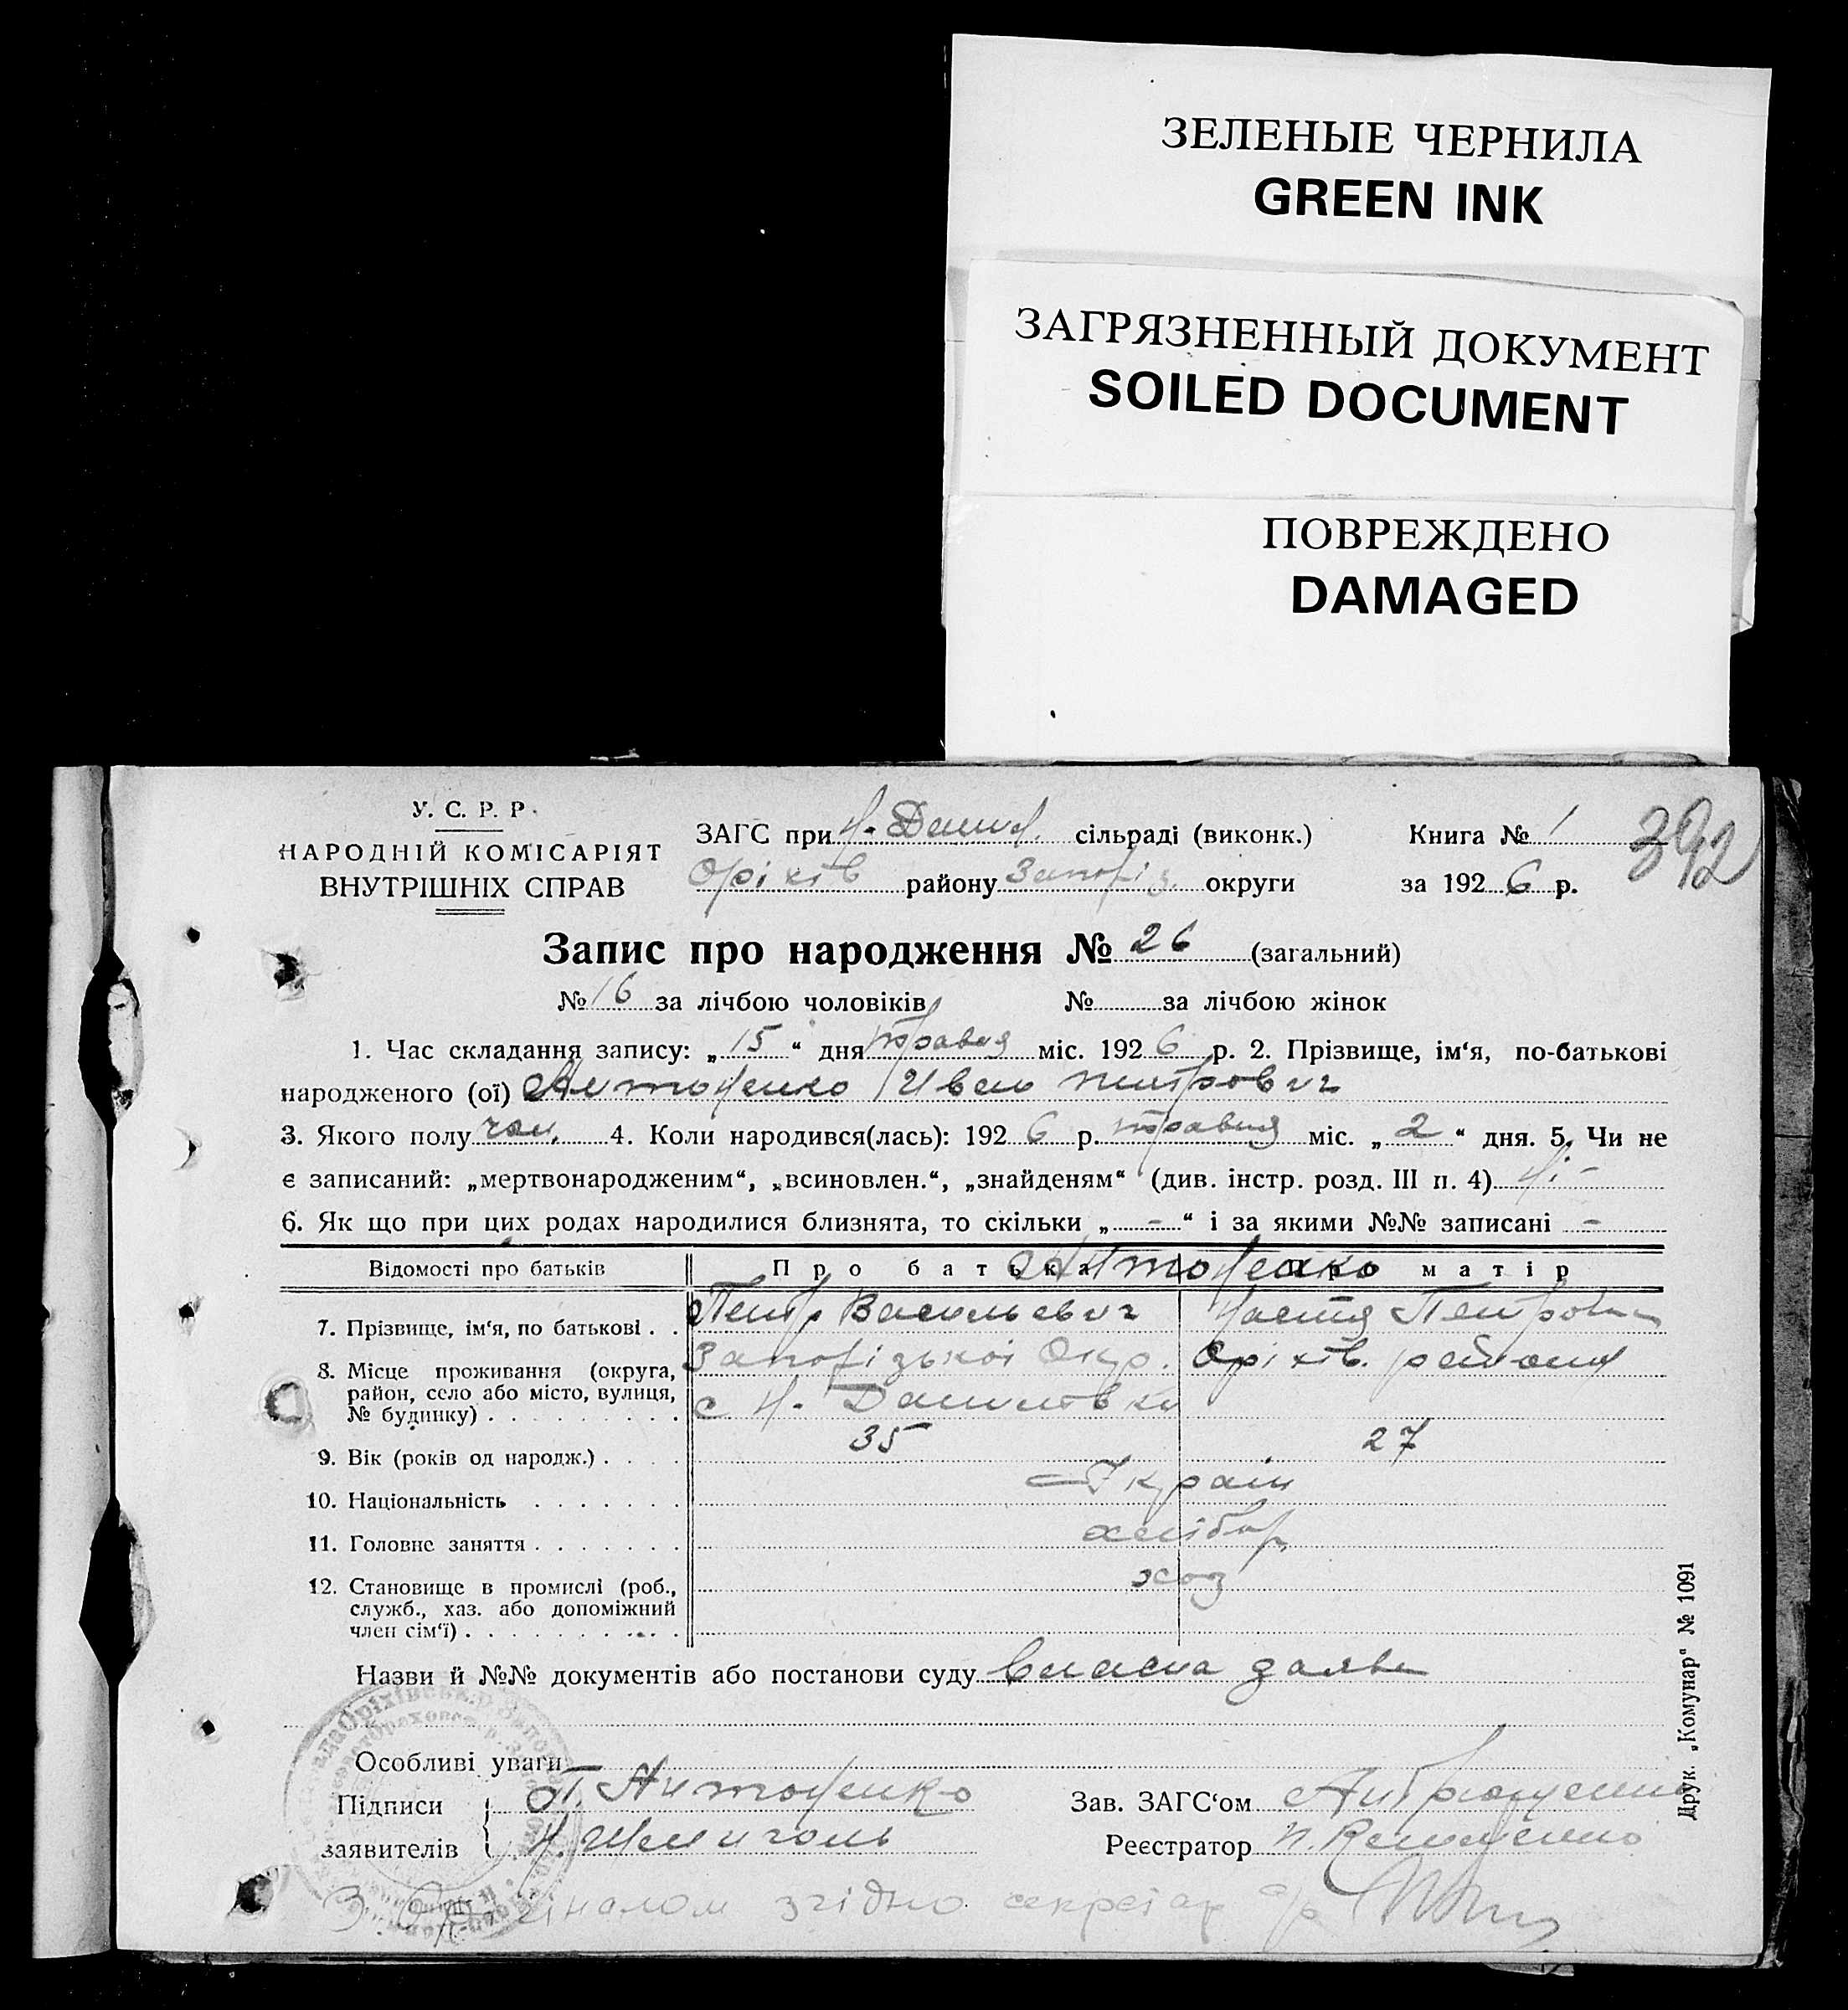 ЗЕЛЕНЫЕ ЧЕРНИЛА
GREEN INK
ЗАГРЯЗНЕННЫЙ ДОКУМЕНТ
SOILED DOCUMENT
ПОВРЕЖДЕНО
DAMAGED
392
У. С. Р. Р.
НАРОДНІЙ КОМІСАРІЯТ
ВНУТРІШНІХ СПРАВ
ЗАГС при Н. Данил. сільраді (виконк.) Книга № 1
Оріхів району Запоріз. округи за 1926 р.
Запис про народження № 26 (загальний)
№ 16 за лічбою чоловіків № за лічбою жінок
1. Час складання запису: „15“ дня травня міс. 1926 р. 2. Прізвище, ім‘я, по-батькові
народженого (ої) Антоненко Иван Петрович
3. Якого полу чол. 4. Коли народився(лась): 1926 р. травня міс. „2“ дня. 5. Чи не
є записаний: „мертвонародженим“, „всиновлен.“, „знайденям“ (див. інстр. розд. III п. 4) Ні –
6. Як що при цих родах народилися близнята, то скільки „ – “ і за якими №№ записані –
Відомості про батьків Про батька Про матір
Антоненко
7. Прізвище, ім‘я, по батькові Петр Васильевич Настя Петровн
8. Місце проживання (округа, район, село або місто, вулиця, № будинку) Запорізької Окр. Оріхів. району
с Н. Данилівки
9. Вік (років од народж.) 35 27
10. Національність Україн
11. Головне заняття хлібор
12. Становище в промислі (роб., служб., хаз. або допоміжний член сім‘ї) хоз
Назви й №№ документів або постанови суду власна заява
Особливі уваги
Підписи П. Антоненко Зав. ЗАГС‘ом
заявителів Н. Шмиголь Реєстратор П.
З оригіналом згідно секретар с/р
Друк. „Комунар“ № 1091